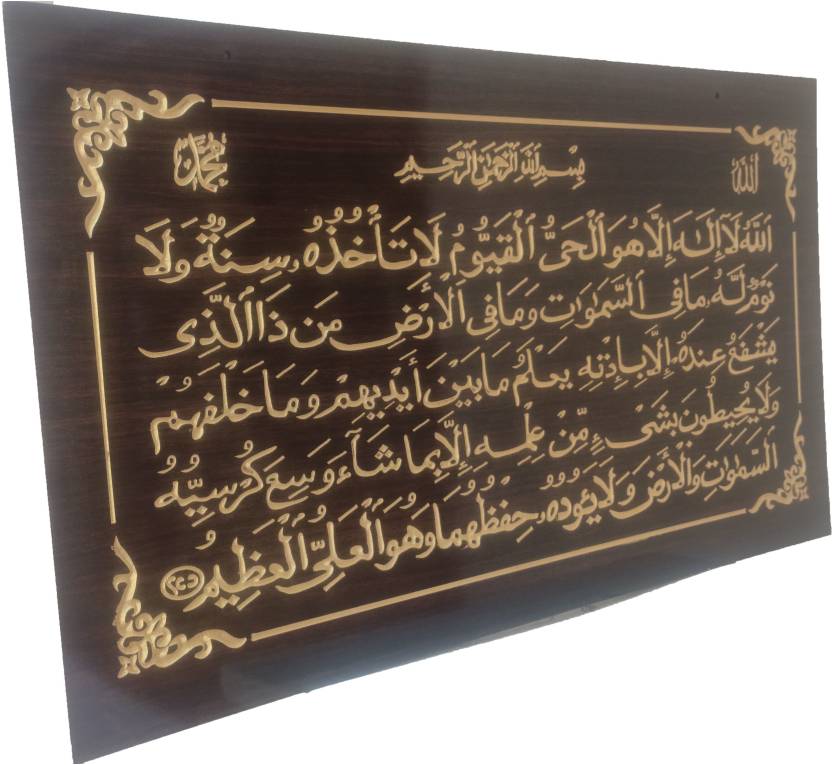 الله بِسْمِ ٱللَّهِ ٱلرَّحْمَٰنِ ٱلرَّحِيمِ محمد
ٱللَّهُ لَآ إِلَٰهَ إِلَّا هُوَ ٱلْحَىُّ ٱلْقَيُّومُ لَا تَأْخُذُهُۥ سِنَةٌ وَلَا
نَوْمٌ لَّهُۥ مَا فِى ٱلسَّمَٰوَٰتِ وَمَا فِى ٱلْأَرْضِ مَن ذَا ٱلَّذِى
يَشْفَعُ عِندَهُۥٓ إِلَّا بِإِذْنِهِ يَعْلَمُ مَا بَيْنَ أَيْدِيهِمْ وَمَا خَلْفَهُمْ
وَلَا يُحِيطُونَ بِشَىْءٍ مِّنْ عِلْمِهِ إِلَّا بِمَا شَآءَ وَسِعَ كُرْسِيُّهُ
ٱلسَّمَٰوَٰتِ وَٱلْأَرْضَ وَلَا يَـُٔودُهُۥ حِفْظُهُمَا وَهُوَ ٱلْعَلِىُّ ٱلْعَظِيمُ